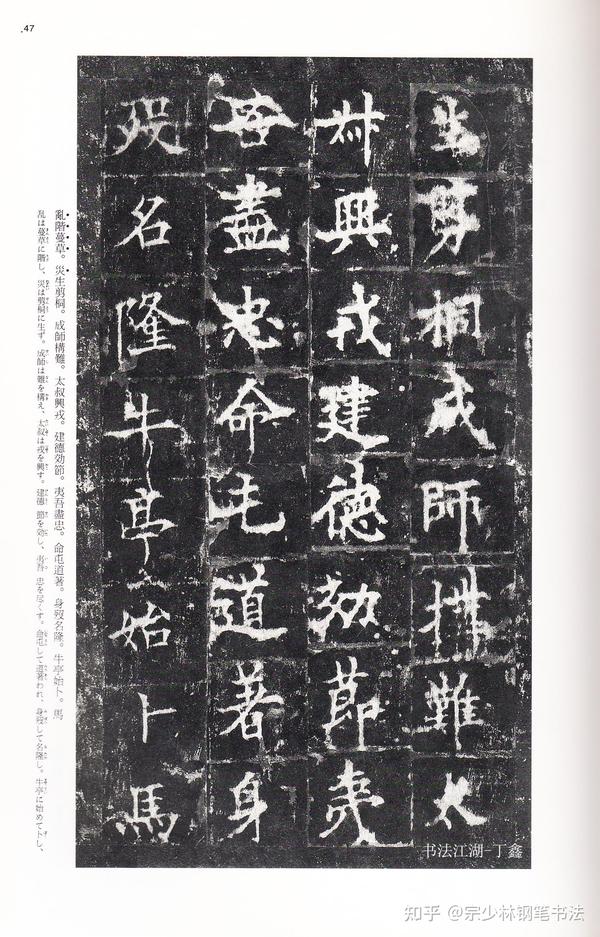 .47
生剪桐成師搆難太
叔興戎建德効節夷
吾盡忠命屯道著身
歿名隆牛亭始卜馬
亂階蔓草。災生剪桐。成師構難。太叔興戎。建德効節。夷吾盡忠。命屯道著。身歿名隆。牛亭始卜。馬
乱は蔓草に階し、災は剪桐に生ず。成師は難を構え、太叔は戎を興す。建徳 節を効し、夷吾 忠を尽くす。命屯して道著われ、身歿して名隆し。牛亭に始めて卜し、
书法江湖-丁鑫
知乎 @宗少林钢笔书法